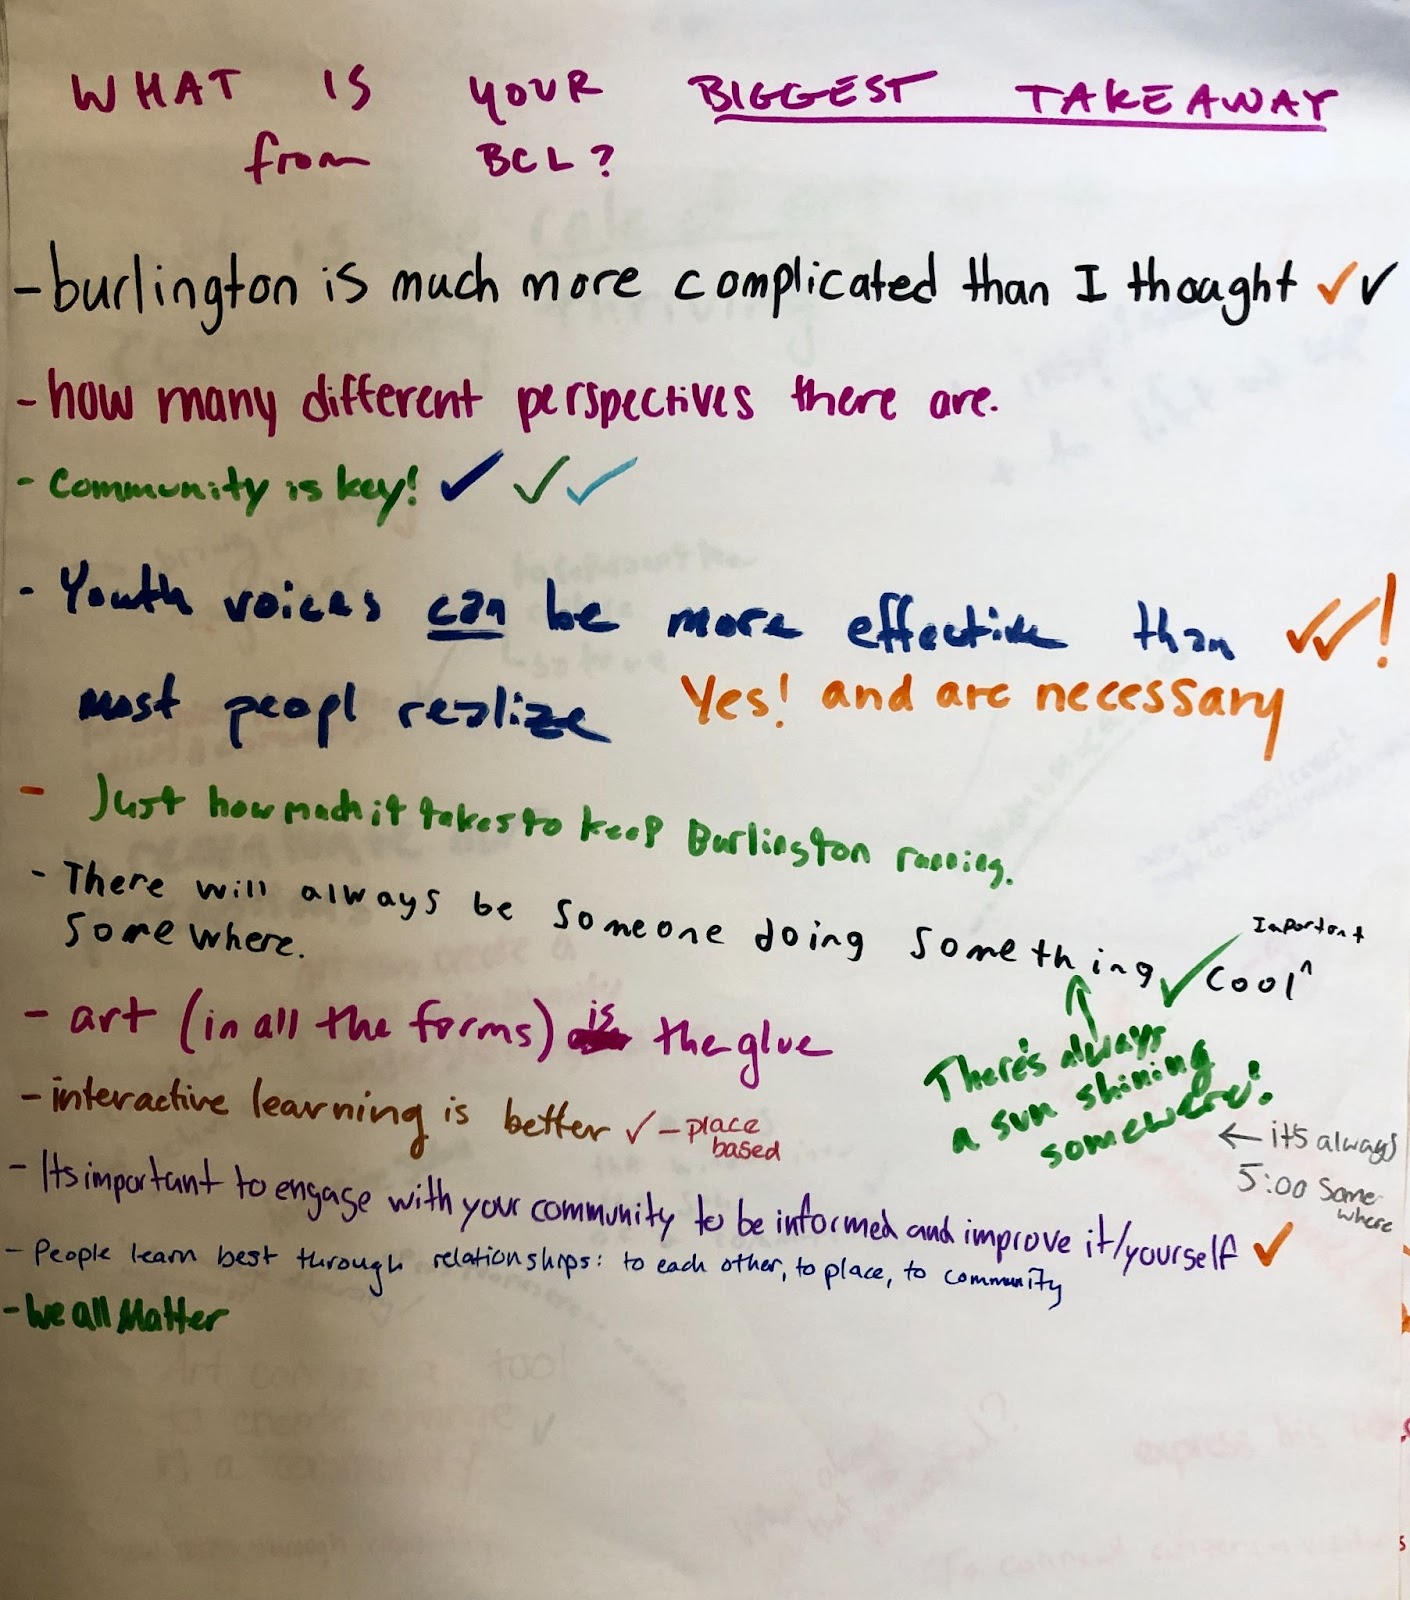 WHAT IS YOUR BIGGEST TAKEAWAY
from BCL?
- burlington is much more complicated than I thought ✓✓
- how many different perspectives there are.
- Community is key! ✓✓✓
- Youth voices can be more effective than ✓✓!
most peopl realize Yes! and are necessary
- Just how much it takes to keep Burlington running.
- There will always be someone doing something ✓ cool ^ Important
somewhere.
There's always
a sun shining
somewhere!
← it's always
5:00 some
where
- art (in all the forms) is the glue
- interactive learning is better ✓ - place
based
- Its important to engage with your community to be informed and improve it/yourself ✓
- People learn best through relationships: to each other, to place, to community
- We all Matter